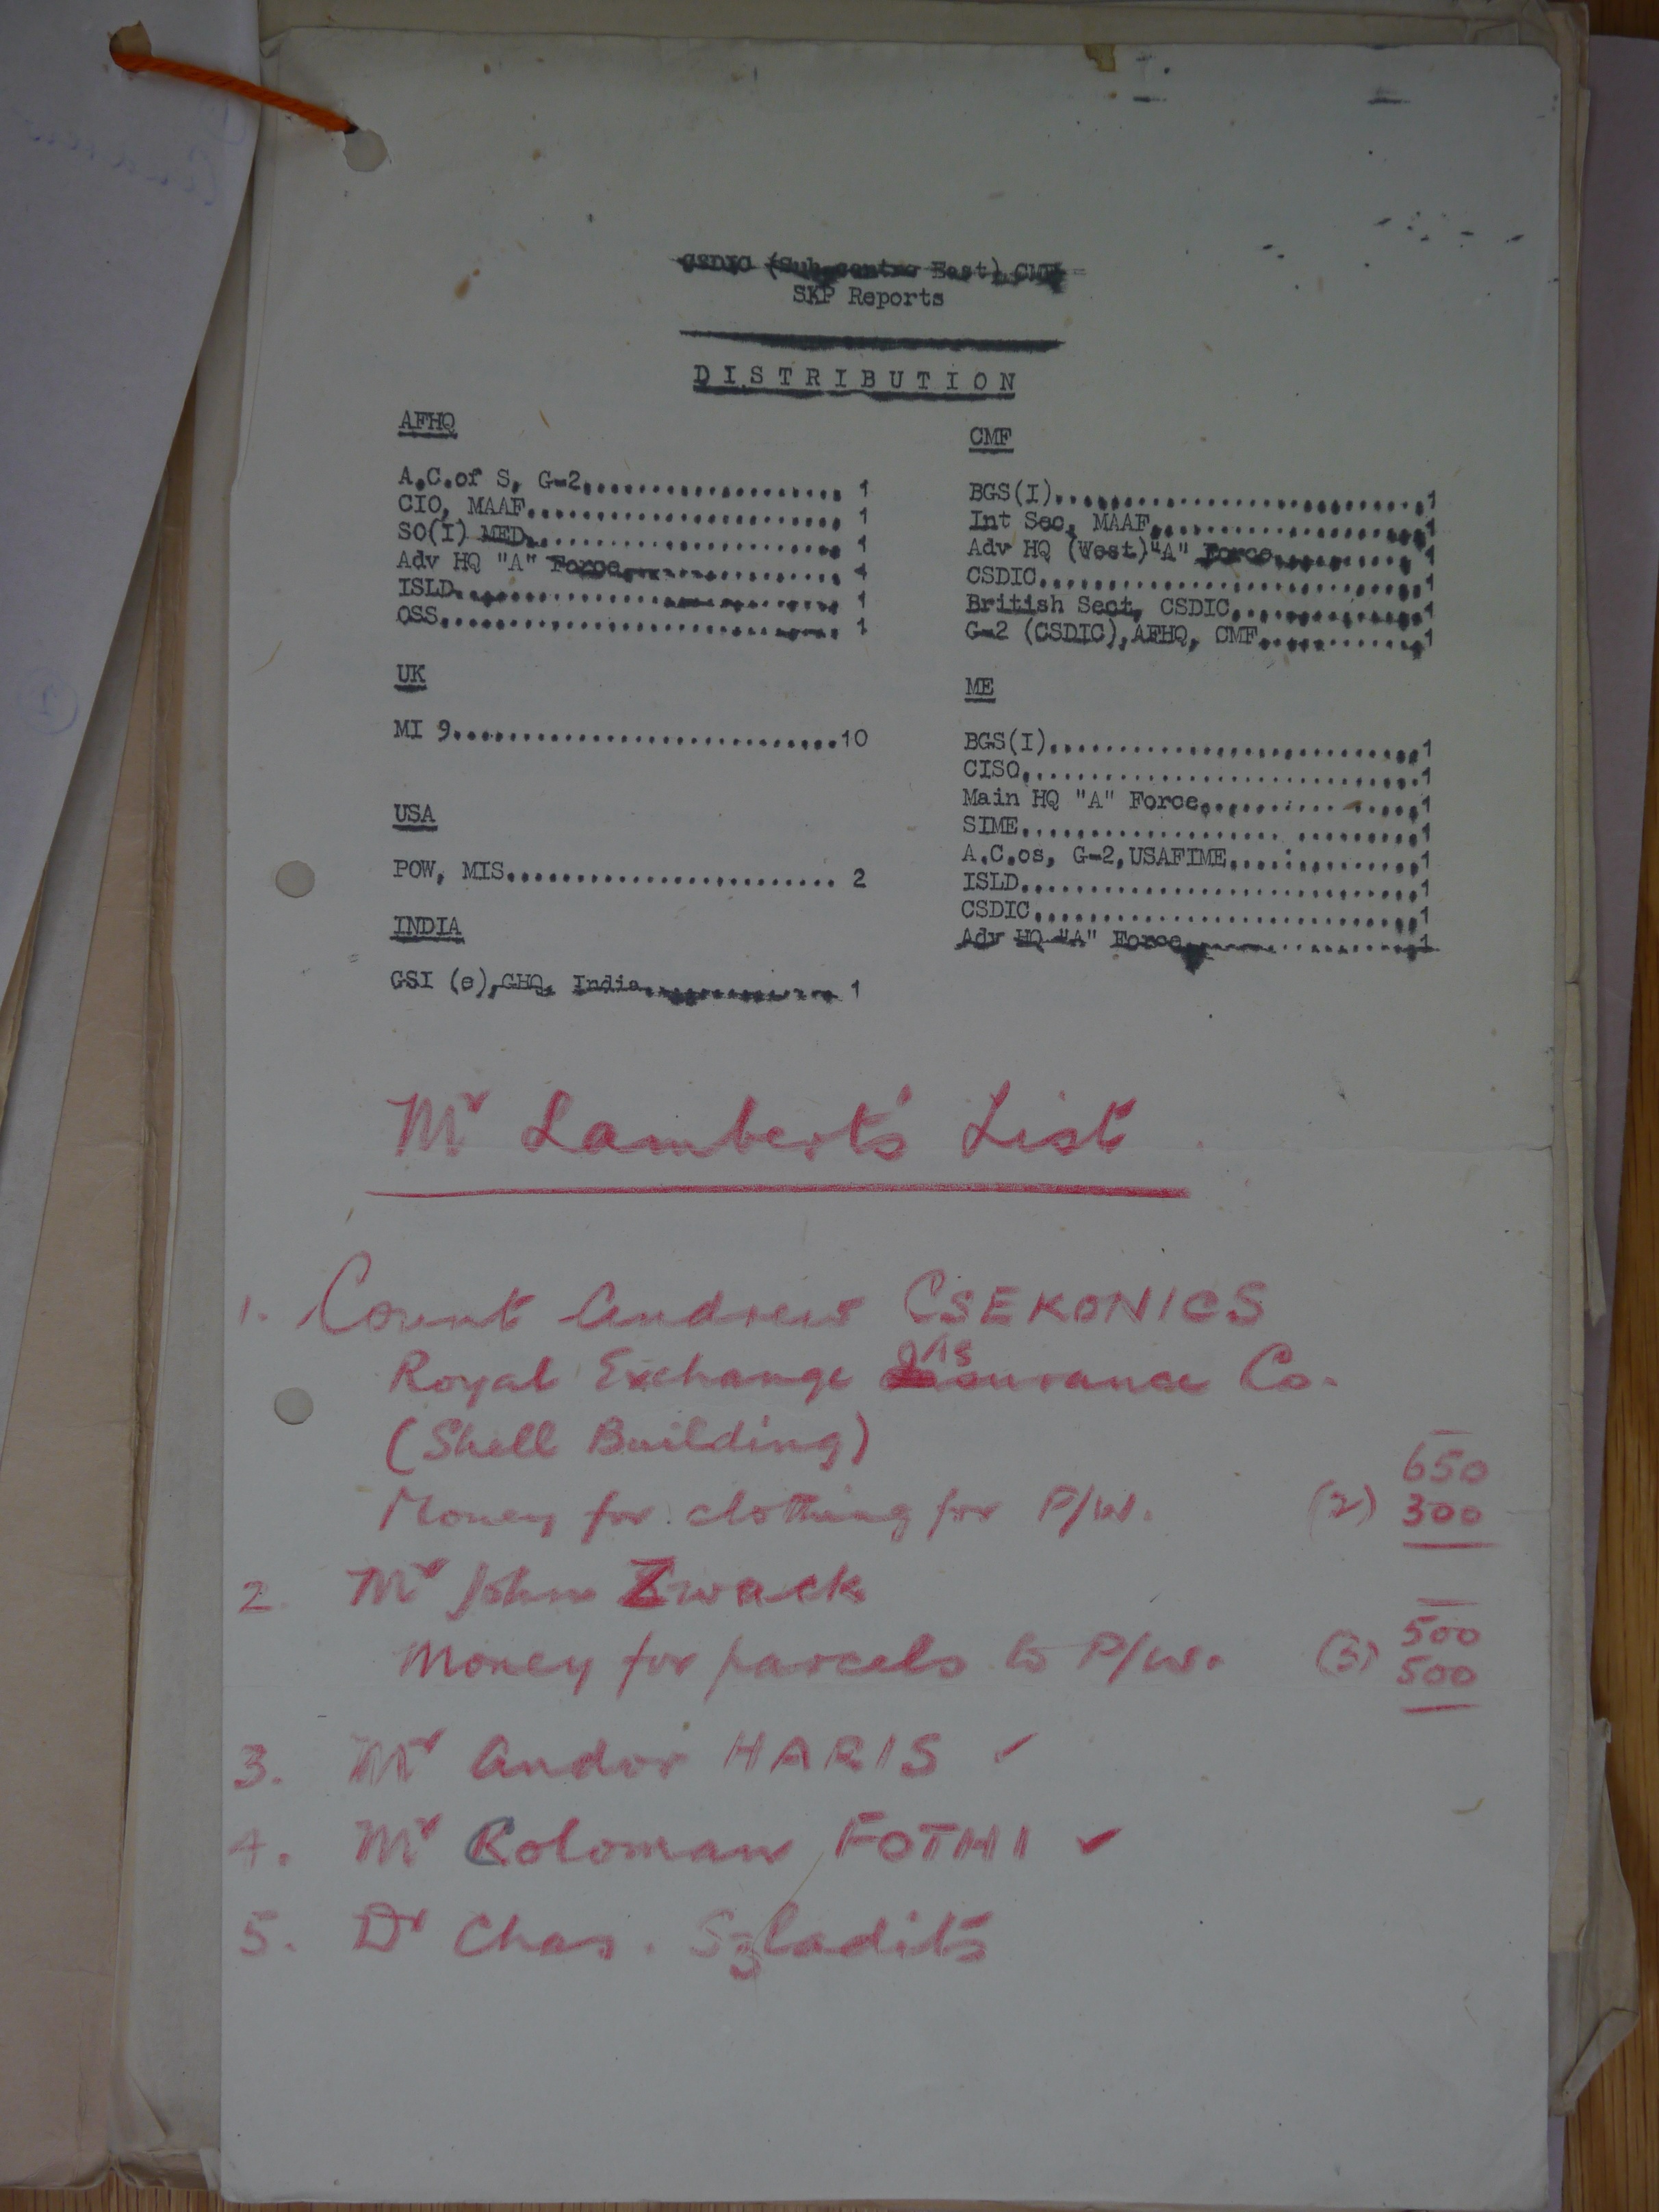 CSDIC (Sub centre East), CMF
SKP Reports
DISTRIBUTION
AFHQ
A.C.of S, G-2.............................. 1
CIO, MAAF.............................. 1
SO(I) MED.............................. 1
Adv HQ "A" Force.............................. 1
ISLD.............................. 1
OSS.............................. 1
UK
MI 9..............................10
USA
POW, MIS.............................. 2
INDIA
GSI (e), GHQ, India.............................. 1
CMF
BGS(I)..............................1
Int Sec, MAAF..............................1
Adv HQ (West) "A" Force..............................1
CSDIC..............................1
British Sect, CSDIC..............................1
G-2 (CSDIC), AFHQ, CMF..............................1
ME
BGS(I)..............................1
CISO..............................1
Main HQ "A" Force..............................1
SIME..............................1
A.C.os, G-2, USAFIME..............................1
ISLD..............................1
CSDIC..............................1
Adv HQ "A" Force..............................1
Mr Lambert's List
1. Count Andrew CSEKONICS
Royal Exchange Insurance Co.
(Shell Building)
650
Money for clothing for P/W. (2) 300
2. Mr John Zwack
500
Money for parcels to P/W. (3) 500
3. Mr Andor HARIS ✓
4. Mr Koloman FOTHI ✓
5. Dr Chas. Szladits